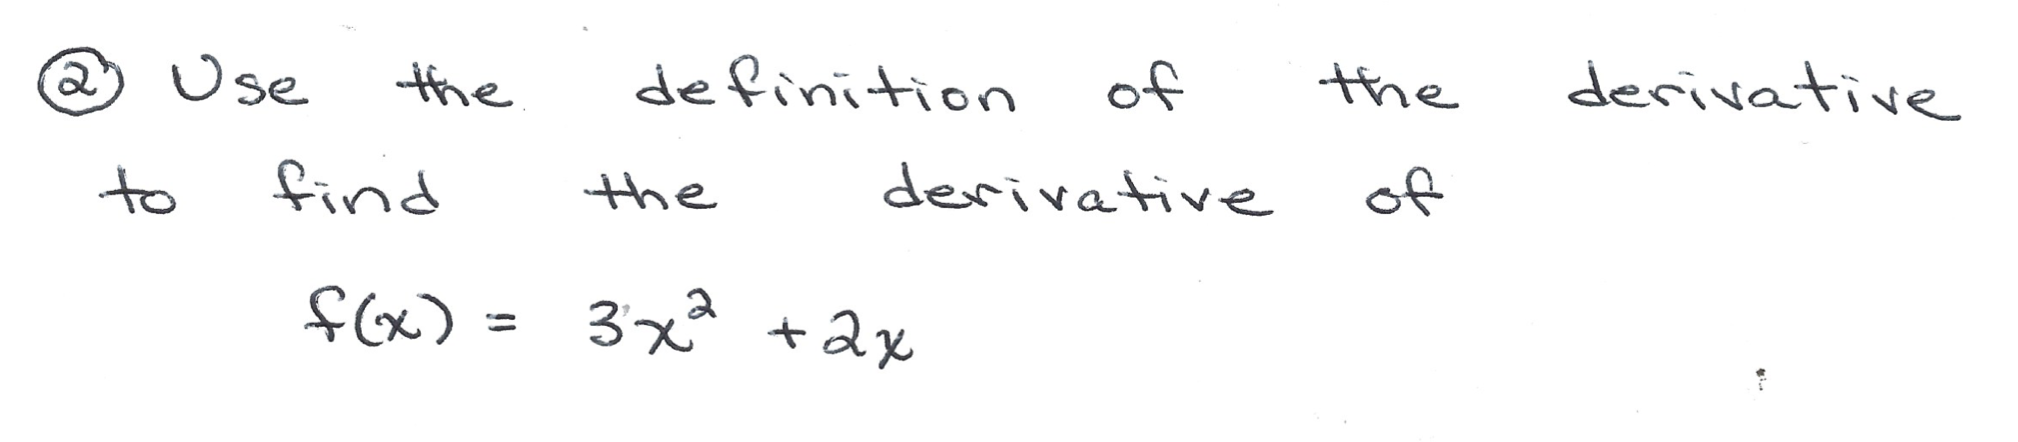 ② Use the definition of the derivative
to find the derivative of
f(x) = 3x² + 2x